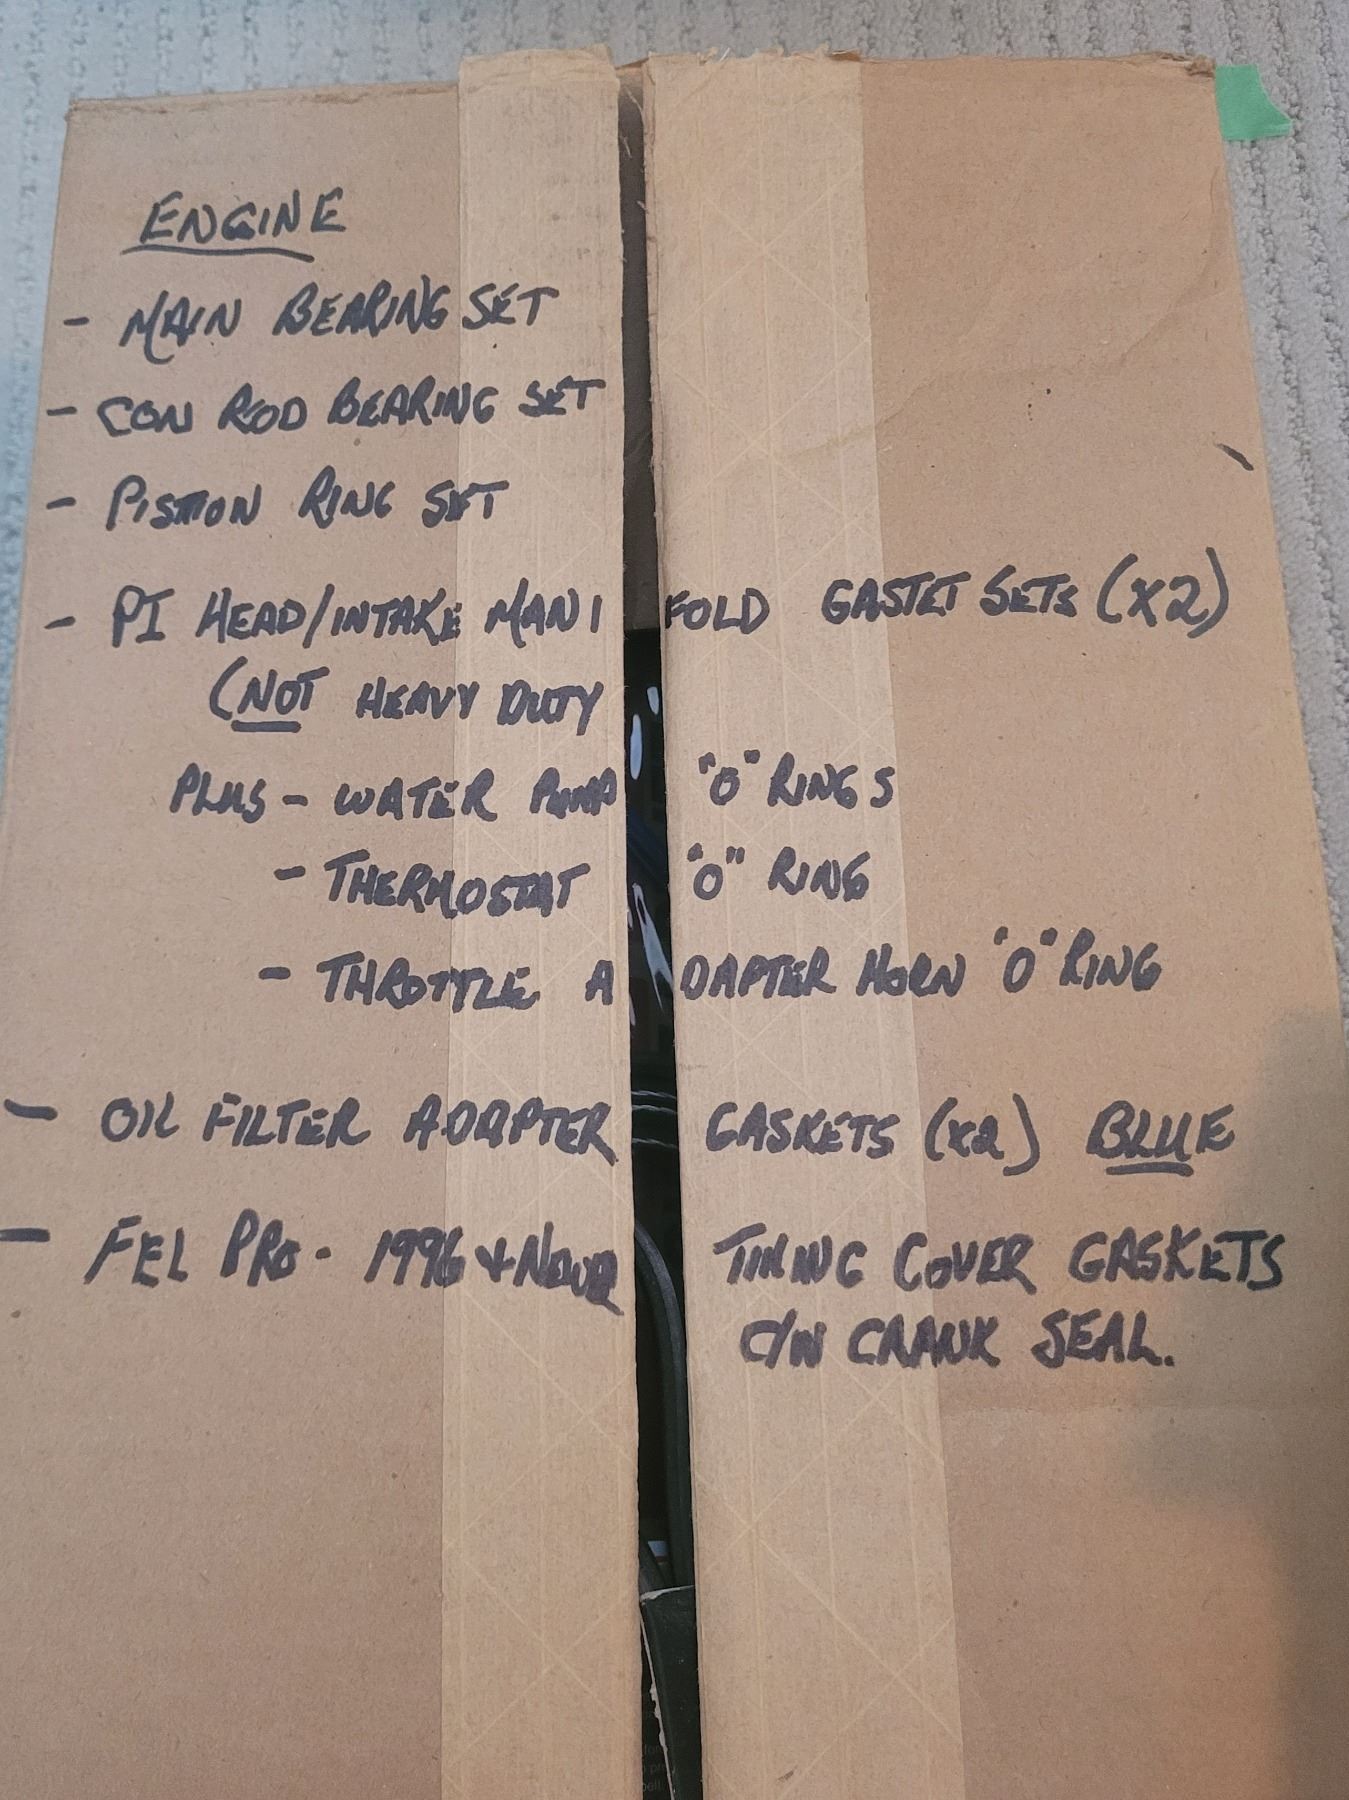 ENGINE
- MAIN BEARING SET
- CON ROD BEARING SET
- PISTION RING SET
- PI HEAD/INTAKE MANIFOLD GASTET SETS (X2)
(NOT HEAVY DUTY
PLUS - WATER PUMP "O" RINGS
- THERMOSTAT "O" RING
- THROTTLE ADAPTER HORN "O" RING
- OIL FILTER ADAPTER GASKETS (x2) BLUE
- FEL PRO - 1996 + NEWER TIMING COVER GASKETS
C/W CRANK SEAL.